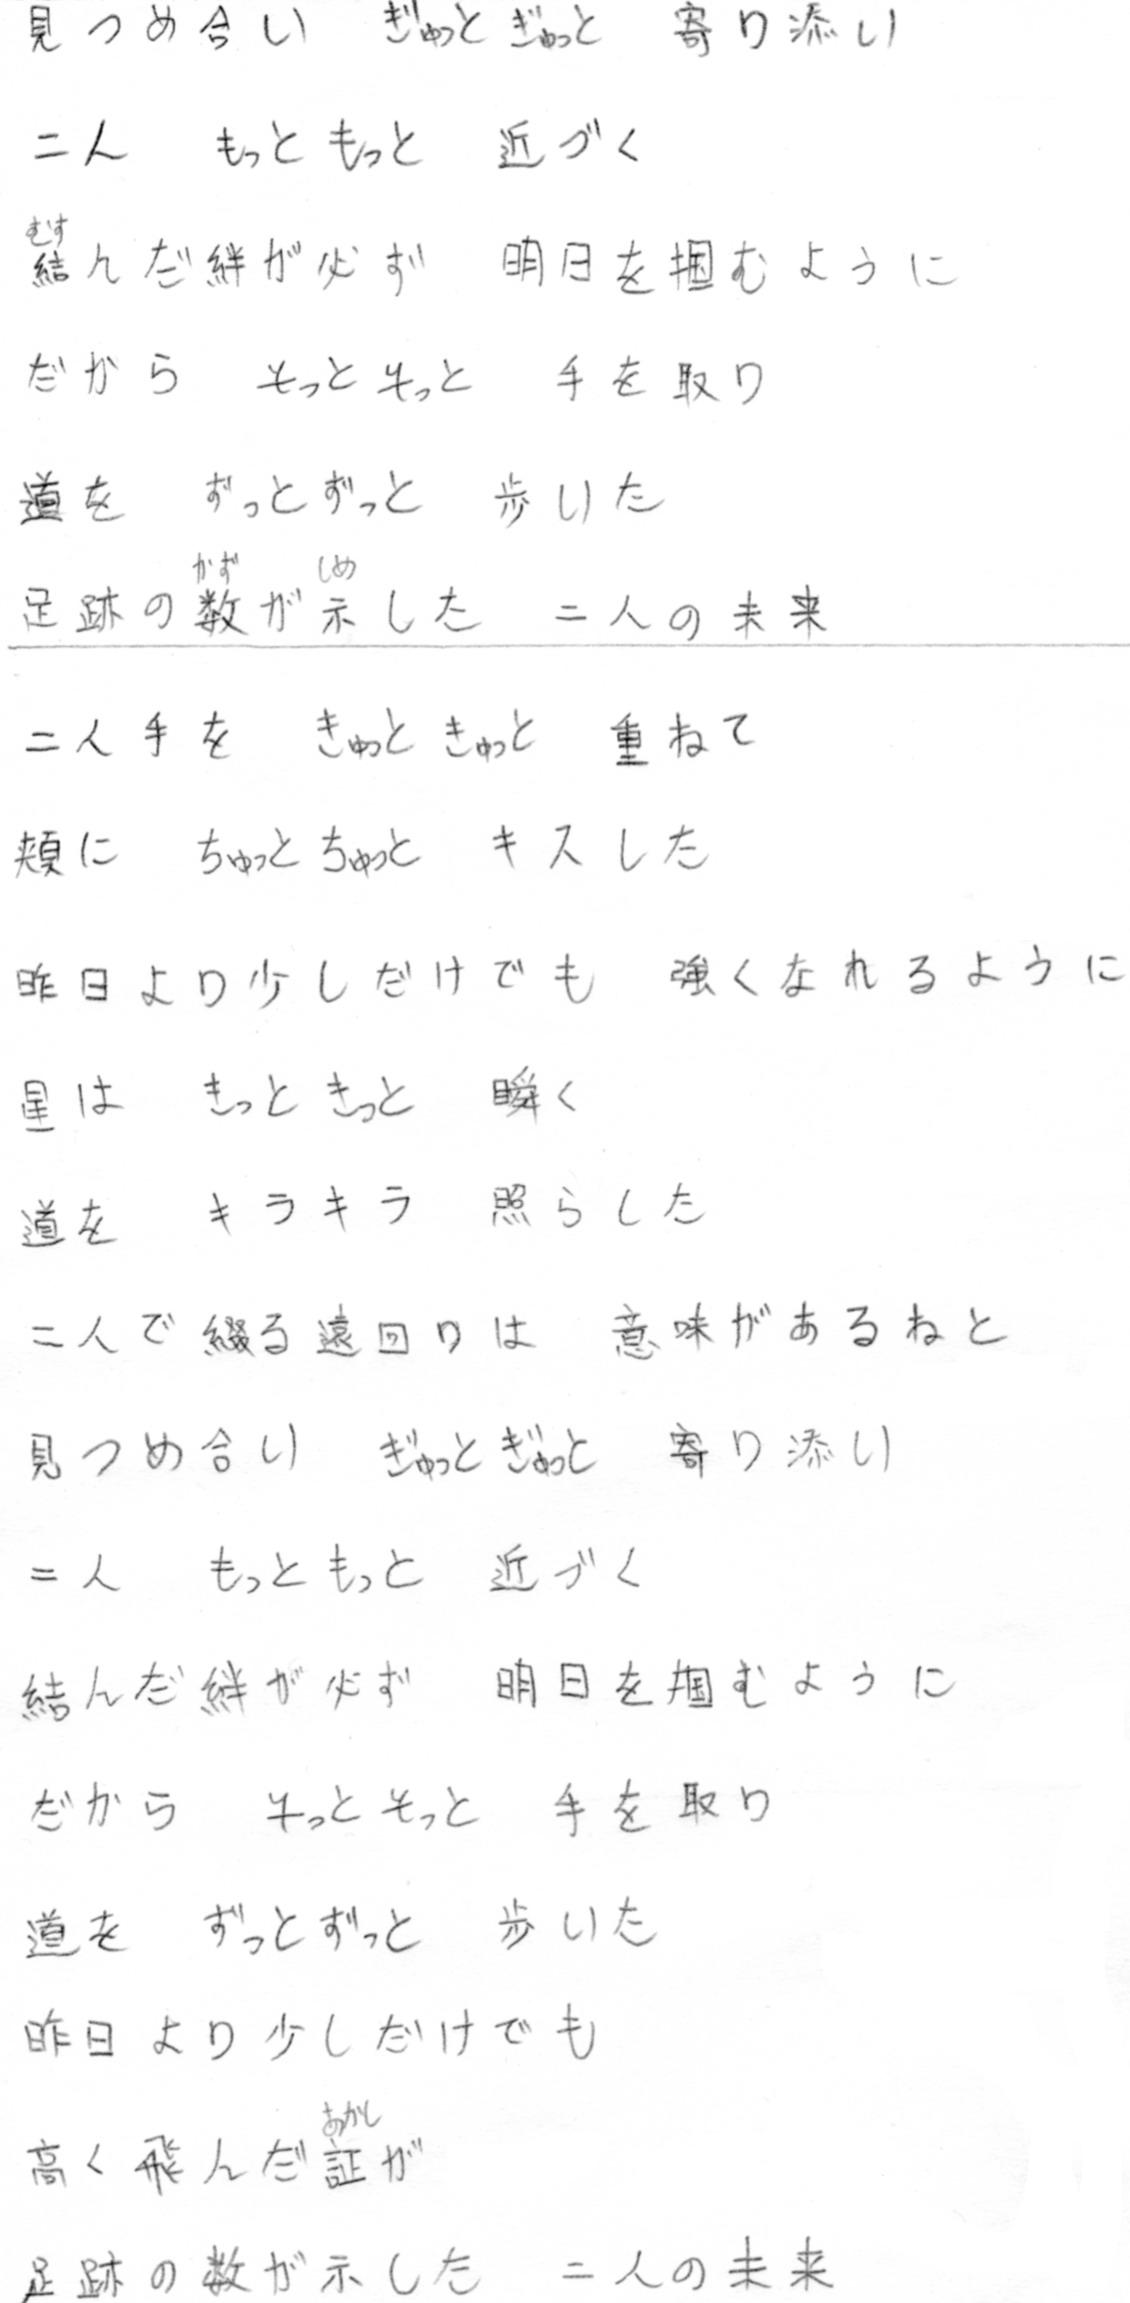 見つめ合い　ぎゅっとぎゅっと　寄り添い
二人　もっともっと　近づく
むす
結んだ絆が必ず　明日を掴むように
だから　そっとそっと　手を取り
道を　ずっとずっと　歩いた
かず　しめ
足跡の数が示した　二人の未来
二人手を　きゅっときゅっと　重ねて
頬に　ちゅっとちゅっと　キスした
昨日より少しだけでも　強くなれるように
星は　きっときっと　瞬く
道を　キラキラ　照らした
二人で綴る遠回りは　意味があるねと
見つめ合い　ぎゅっとぎゅっと　寄り添い
二人　もっともっと　近づく
結んだ絆が必ず　明日を掴むように
だから　そっとそっと　手を取り
道を　ずっとずっと　歩いた
昨日より少しだけでも
あかし
高く飛んだ証が
足跡の数が示した　二人の未来